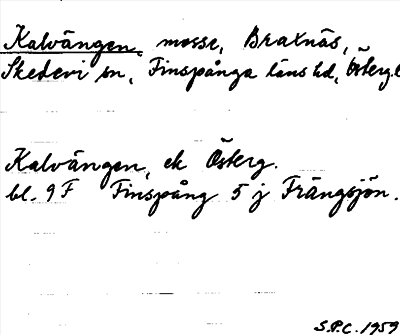 Kalvängen, mosse, Braxnäs,
Skedevi sn, Finspånga läns hd, Österg.l
Kalvängen, ek Österg.
bl. 9 F Finspång 5 j Frängsjön.
S.P.C. 1959